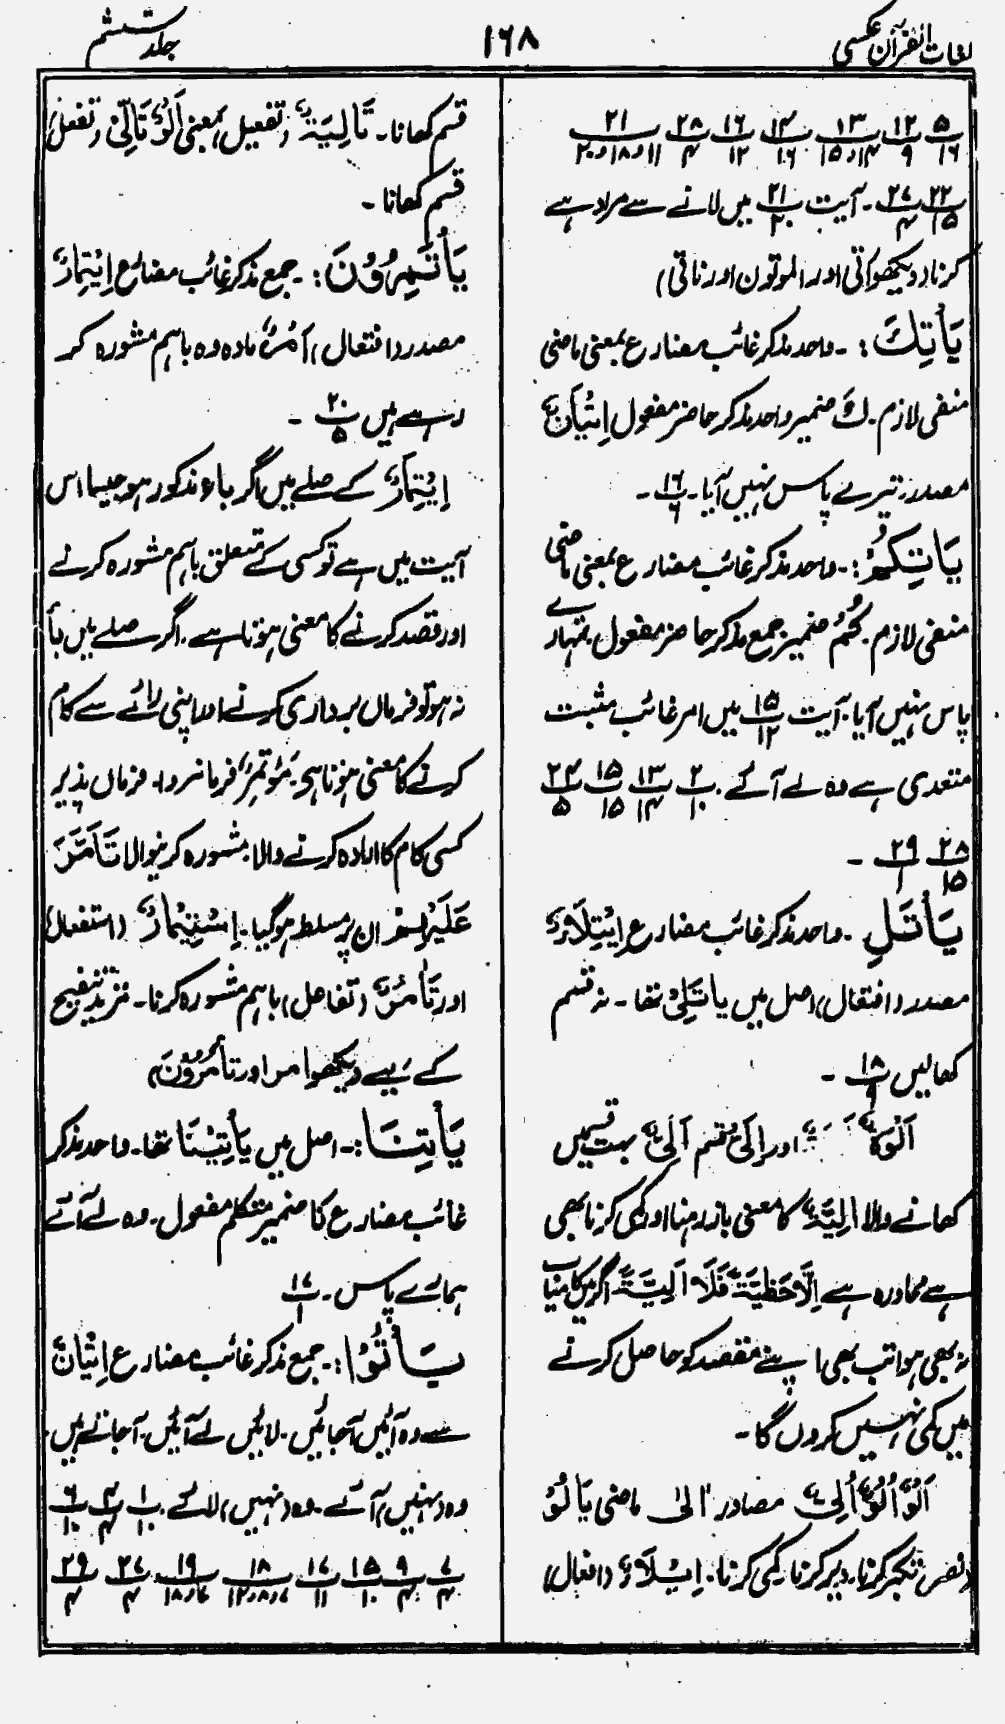 لغات القرآن عکسی
۱۶۸
جلد ششم
۵/۱۶ ۱۲/۹ ۱۳/۱۴و۱۵ ۱۴/۱۶ ۱۶/۱۲ ۲۸/۴ ۲۱/۱۱و۱۸و۲۰
۲۲/۱۵ ۲۷/۴ ۔ آیت ۲۱/۲۰ میں لانے سے مراد ہے
کرنا (دیکھو اٰتی اور الموتون اور ناتی)
یَأْتِكَ:۔ واحد مذکر غائب مضارع بمعنی ماضی
منفی لازم۔ كَ ضمیر واحد مذکر حاضر مفعول اِتْیَانٌ
مصدر۔ تیرے پاس نہیں آیا۔ ۱۶/۶ ۔
یَاتِكُمْ:۔ واحد مذکر غائب مضارع بمعنی ماضی
منفی لازم۔ كُمْ ضمیر جمع مذکر حاضر مفعول۔ تمہارے
پاس نہیں آیا۔ آیت ۱۵/۱۲ میں امر غائب مثبت
متعدی ہے وہ لے آئے۔ ۲/۱۰ ۱۳/۱۴ ۱۵/۱۵ ۲۴/۵
۲۸/۱۵ ۲۹/۱ ۔
یَأْتَلِ ۔ واحد مذکر غائب مضارع اِیْتِلَاءٌ
مصدر (افتعال) اصل میں یاتَلِیْ تھا ۔ نہ قسم
کھالیں ۱۸/۹ ۔
اَلْوَةٌ اور اِلیٰ قسم اَلِیٌّ بہت قسمیں
کھانے والا اَلِیَّةٌ کا معنی باز رہنا اور کمی کرنا بھی
ہے محاورہ ہے اِلَّا حَظِیَّةٌ فَلَا اَلِیَّةً اگر میں کامیاب
نہ بھی ہوا تب بھی اپنے مقصد کو حاصل کرنے
میں کمی نہیں کروں گا۔
اَلْوٌ اُلُوٌّ اُلِیٌّ مصادر اَلیٰ ماضی یَاْلُوْ
(نصر) تکبر کرنا۔ دیر کرنا کمی کرنا۔ اِیْلَاءٌ (افعال)
قسم کھانا۔ تَاْلِیَةٌ (تفعیل) بمعنی اَلْوٌ تَاَلِّیْ (تفعل)
قسم کھانا ۔
یَأْتَمِرُوْنَ:۔ جمع مذکر غائب مضارع اِیْتِمَارٌ
مصدر (افتعال) اَمْرٌ مادہ وہ باہم مشورہ کر
رہے ہیں ۲۰/۵ ۔
اِیْتِمَارٌ کے صلے میں اگر باء مذکور ہو جیسا اس
آیت میں ہے تو کسی کے متعلق باہم مشورہ کرنے
اور قصد کرنے کا معنی ہوتا ہے۔ اگر صلے میں بأ
نہ ہو تو فرماں برداری کرنے اور اپنی رائے سے کام
کرنے کا معنی ہوتا ہے۔ مُؤْتَمِرٌ فرمانروا۔ فرماں پذیر
کسی کام کا ارادہ کرنے والا۔ مشورہ کرنیوالا تَاَمَّرَ
عَلَیْهِمْ ان پر مسلط ہوگیا۔ اِسْتِیْمَارٌ (استفعال)
اور تَاَمُرٌ (تفاعل) باہم مشورہ کرنا۔ مزید تنقیح
کے لیے دیکھو امر اور تأمُرُوْنَ)
یَأْتِنَا:۔ اصل میں یَأْتِیْنَا تھا۔ واحد مذکر
غائب مضارع نَا ضمیر متکلم مفعول۔ وہ لے آئے
ہمارے پاس۔ ۱۷/۱
یَأْتُوْا:۔ جمع مذکر غائب مضارع اِتْیَانٌ
سے وہ آئیں آجائیں۔ لائیں لے آئیں۔ آجاتے ہیں
وہ (نہیں) آئے۔ وہ (نہیں) لائے۔ ۱/۱۰ ۴/۴ ۶/۱۰
۷/۴ ۹/۴ ۱۵/۱۰ ۱۷/۱۱ ۱۸/۷و۸و۱۲ ۱۹/۷و۱۸ ۲۷/۴ ۲۹/۴